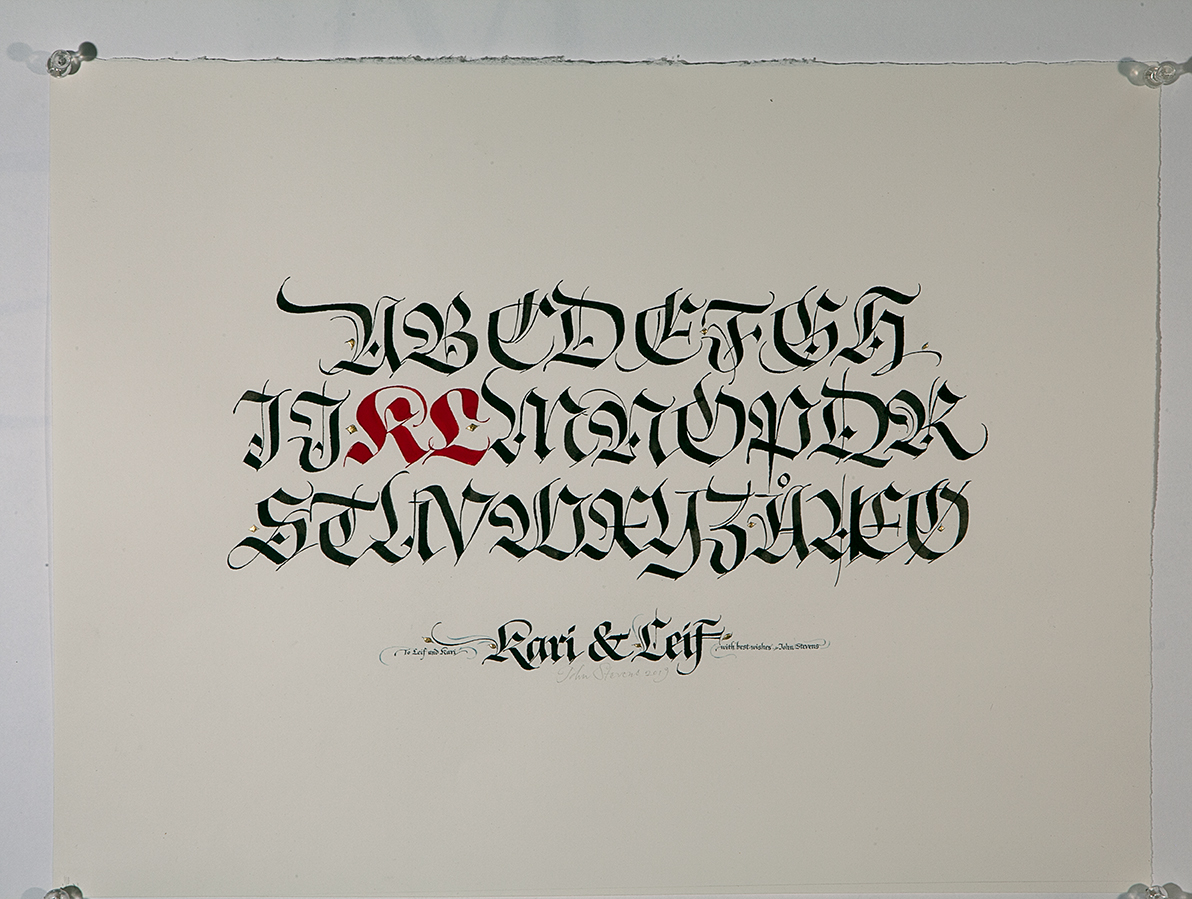 ABCDEFGH
IJKLMNOPQR
STUVWXYZÅÆØ
To Leif and Kari Kari & Leif with best wishes, John Stevens
John Stevens 2019